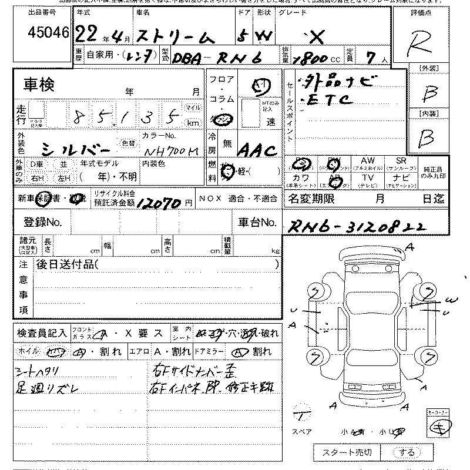 出品番号 年式 車名 ドア 形状 グレード 評価点
45046 22年4月 ストリーム 5 W X R
歴 自家用・レンタ 型式 DBA-RN6 排気量 1800cc 定員 7人
車検 年 月
フロア・コラム・
AT
MTのみ記入
速
セールスポイント
・外品ナビ
・ETC
[外装]
B
[内装]
B
走行 85135 マイル km
外装色 シルバー 色替 カラーNo. NH700M
冷房 無 AAC
燃料
外車のみ記入 D車 並 年式モデル 内装色
右H 左H (年)・不明
カワ AW SR TV ナビ
純正品のみ丸印
新車保証書・ リサイクル料金 預託済金額 12070円 NOX 適合・不適合
名変期限 月 日迄
登録No. 車台No. RN6-3120822
諸元 長さ cm 幅 cm 高さ cm 積載量 kg
注意事項
後日送付品( )
A
A
U
A
W
U
A
検査員記入 フロントガラス A・X要ス 室内シート コゲ・穴・・破れ
ホイル A・割れ エアロ A・割れ ドアミラー A 割れ
シートヘタリ
足廻リズレ
右Fサイドメンバー歪
右Fインパネ部修正キ跡
スペア
コーナー
スタート売切 (する)